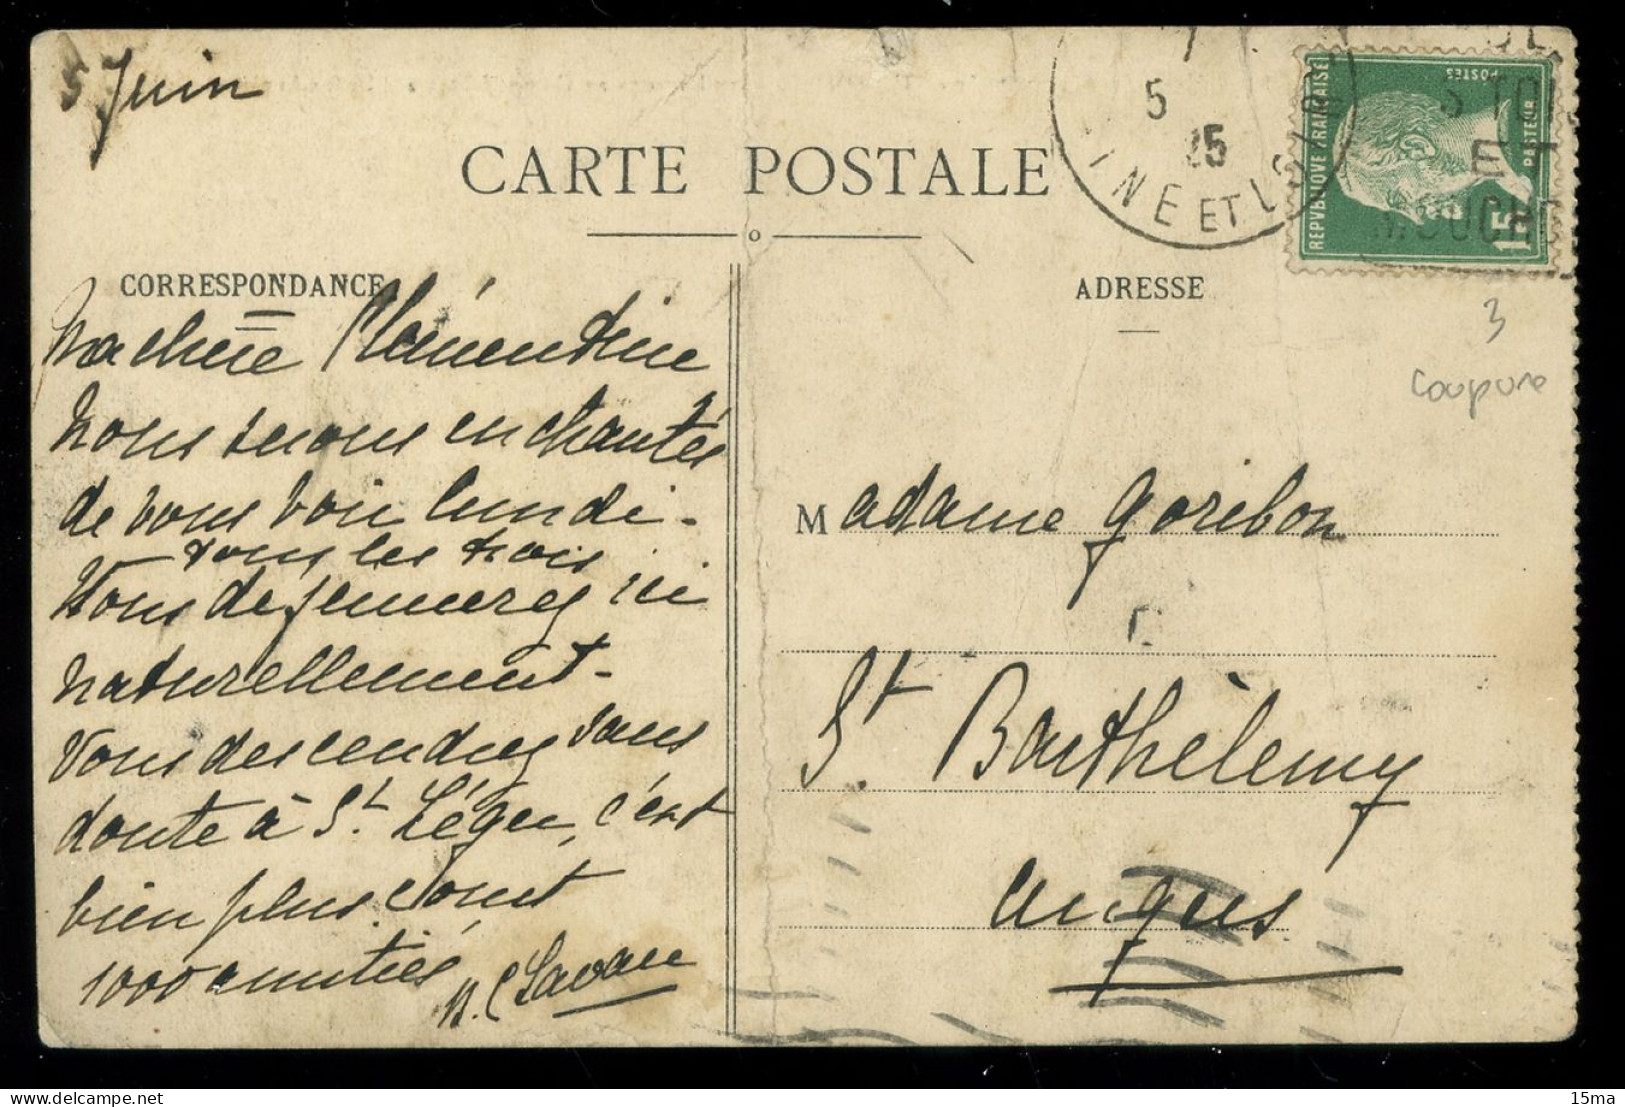 5 Juin
CARTE POSTALE
CORRESPONDANCE
Ma chère Clémentine
Nous serons enchantés
de vous voir lundi.
tous les trois
Vous déjeunerez ici
naturellement.
Vous descendrez sans
doute à St. Léger, c'est
bien plus court
1000 amitiés
5
25
INE ET LOIR
REPVBLIQVE FRANÇAISE
POSTES
PASTEUR
15
ET
MOUCHE
ADRESSE
3
coupure
Madame Goribon
St. Barthèlemy
Angers
15ma